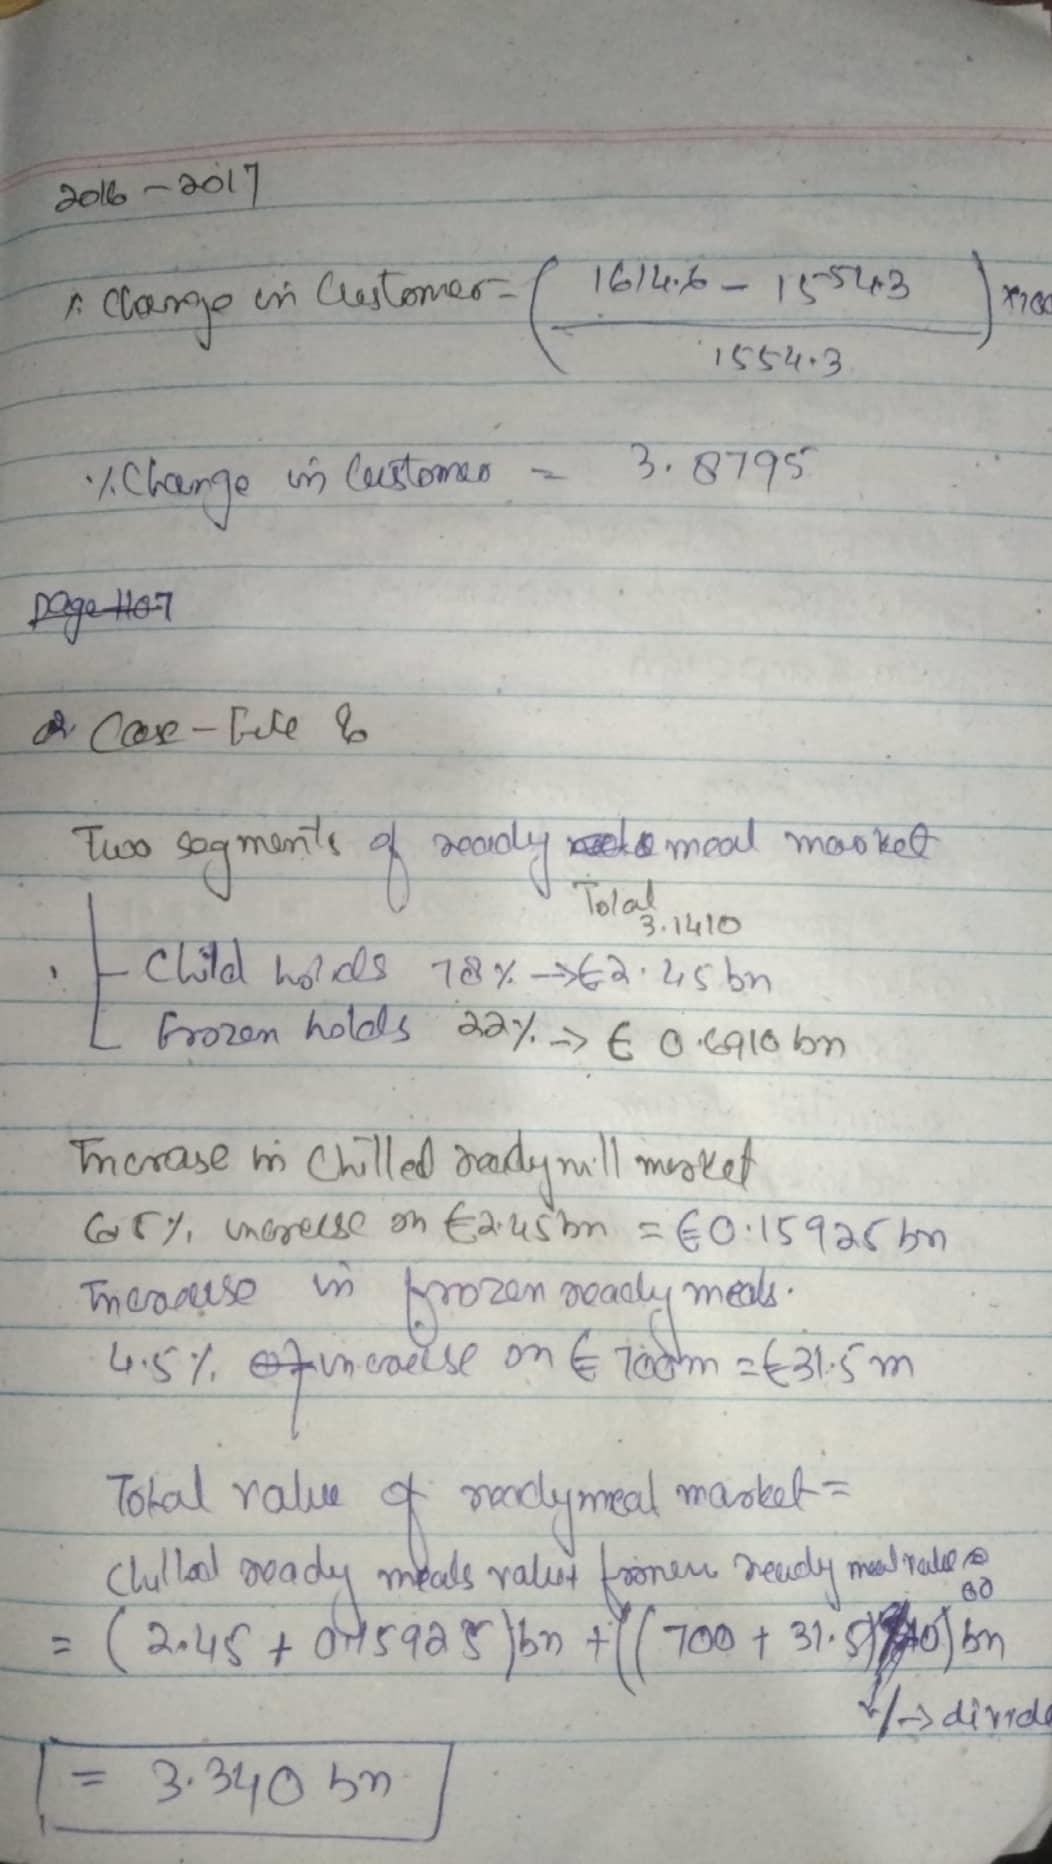 2016 - 2017
% Change in Customer = ( 1614.6 - 1554.3 ) × 100
1554.3
% Change in Customer = 3.8795
Page 1107
Case - File
Two segments of ready meal market
Total
3.1410
Child holds 78% → € 2.45 bn
Frozen holds 22% → € 0.6910 bn
Increase in Chilled ready mill market
6.5% increase on € 2.45 bn = € 0.15925 bn
Increase in frozen ready meals.
4.5% increase on € 700m = € 31.5 m
Total value of ready meal market =
Chilled ready meals value + frozen ready meal value
= ( 2.45 + 0.15925 ) bn + ( ( 700 + 31.5 ) bn
/ → divide
= 3.340 bn